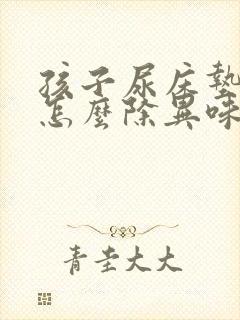 孩子尿床墊
怎麼除異味
青圭大大